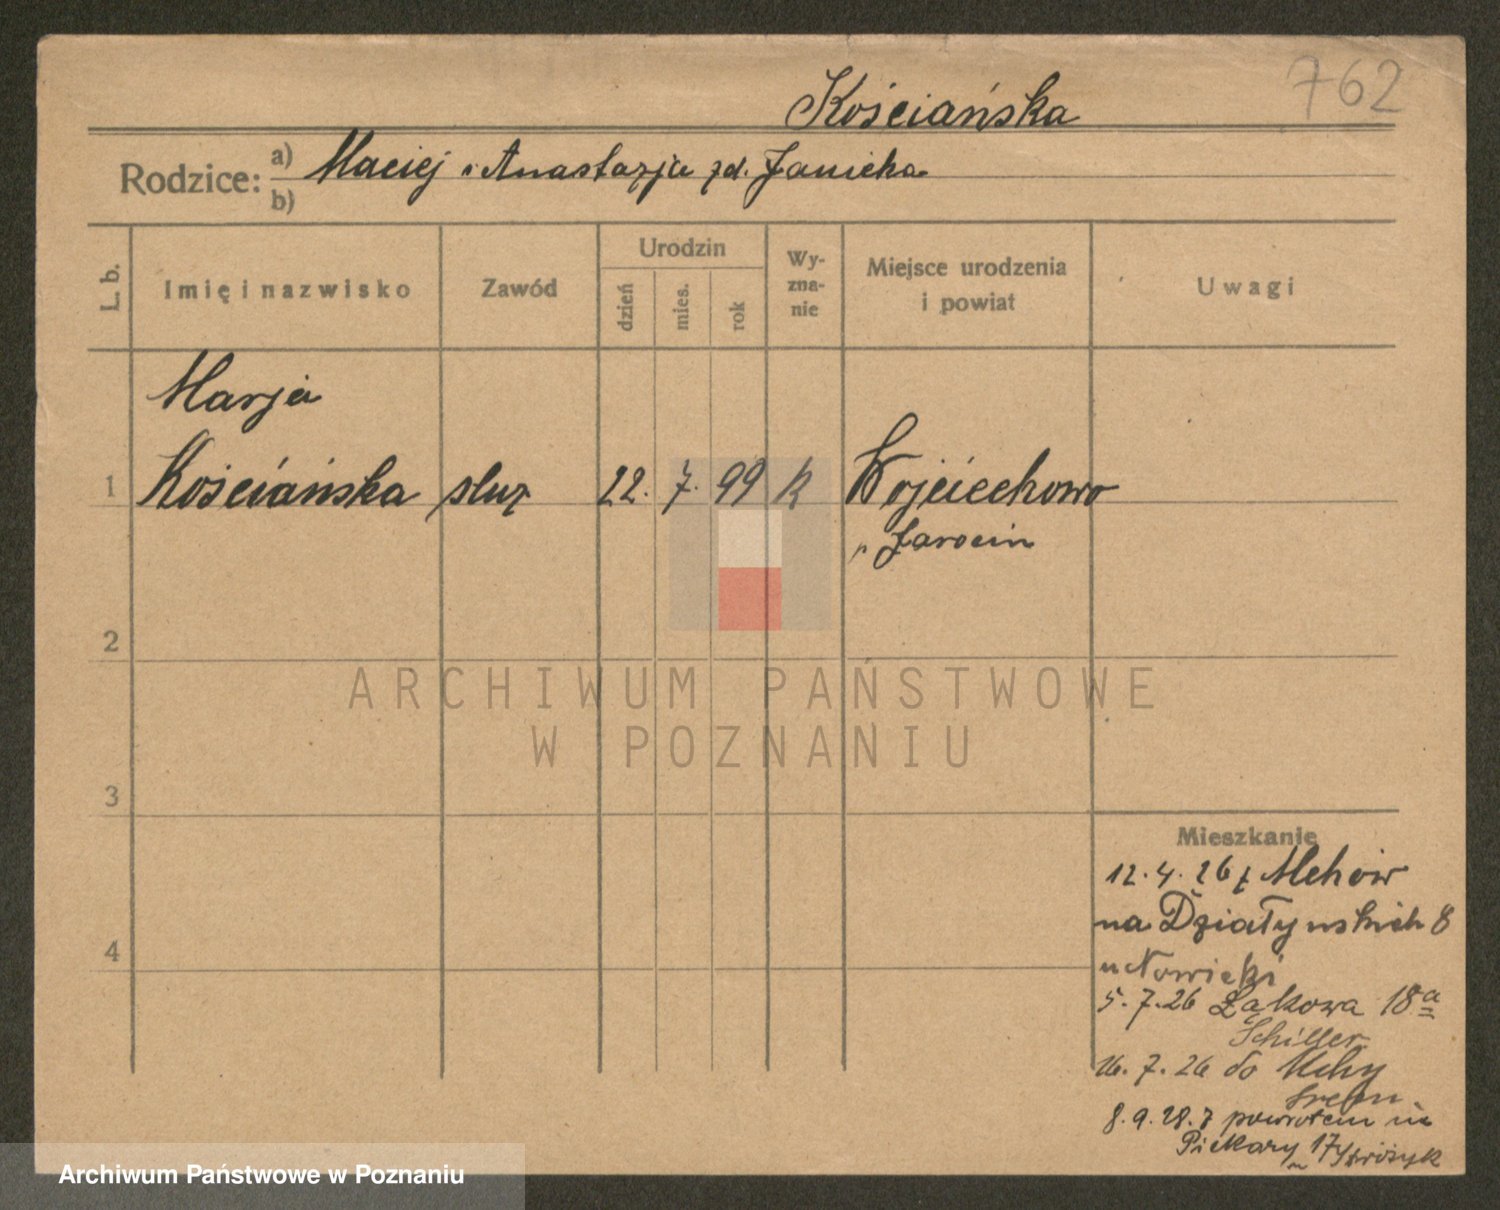 762
Kościańska
Rodzice: a) Maciej i Anastazja zd. Janicka
b)
L. b.
Imię i nazwisko
Zawód
Urodzin
dzień
mies.
rok
Wy-
zna-
nie
Miejsce urodzenia
i powiat
Uwagi
Marja
1 Kościańska służ 22. 7. 99 k Wojciechowo
p. Jarocin
2
3
4
ARCHIWUM PAŃSTWOWE
W POZNANIU
Mieszkanie
12.4.26 z Mchów
na Działyńskich 8
u Nowicki
5.7.26 Łąkowa 18a
Schiller
16.7.26 do Mchy
Śrem
8.9.28. z powrotem na
Piekary 17
Archiwum Państwowe w Poznaniu